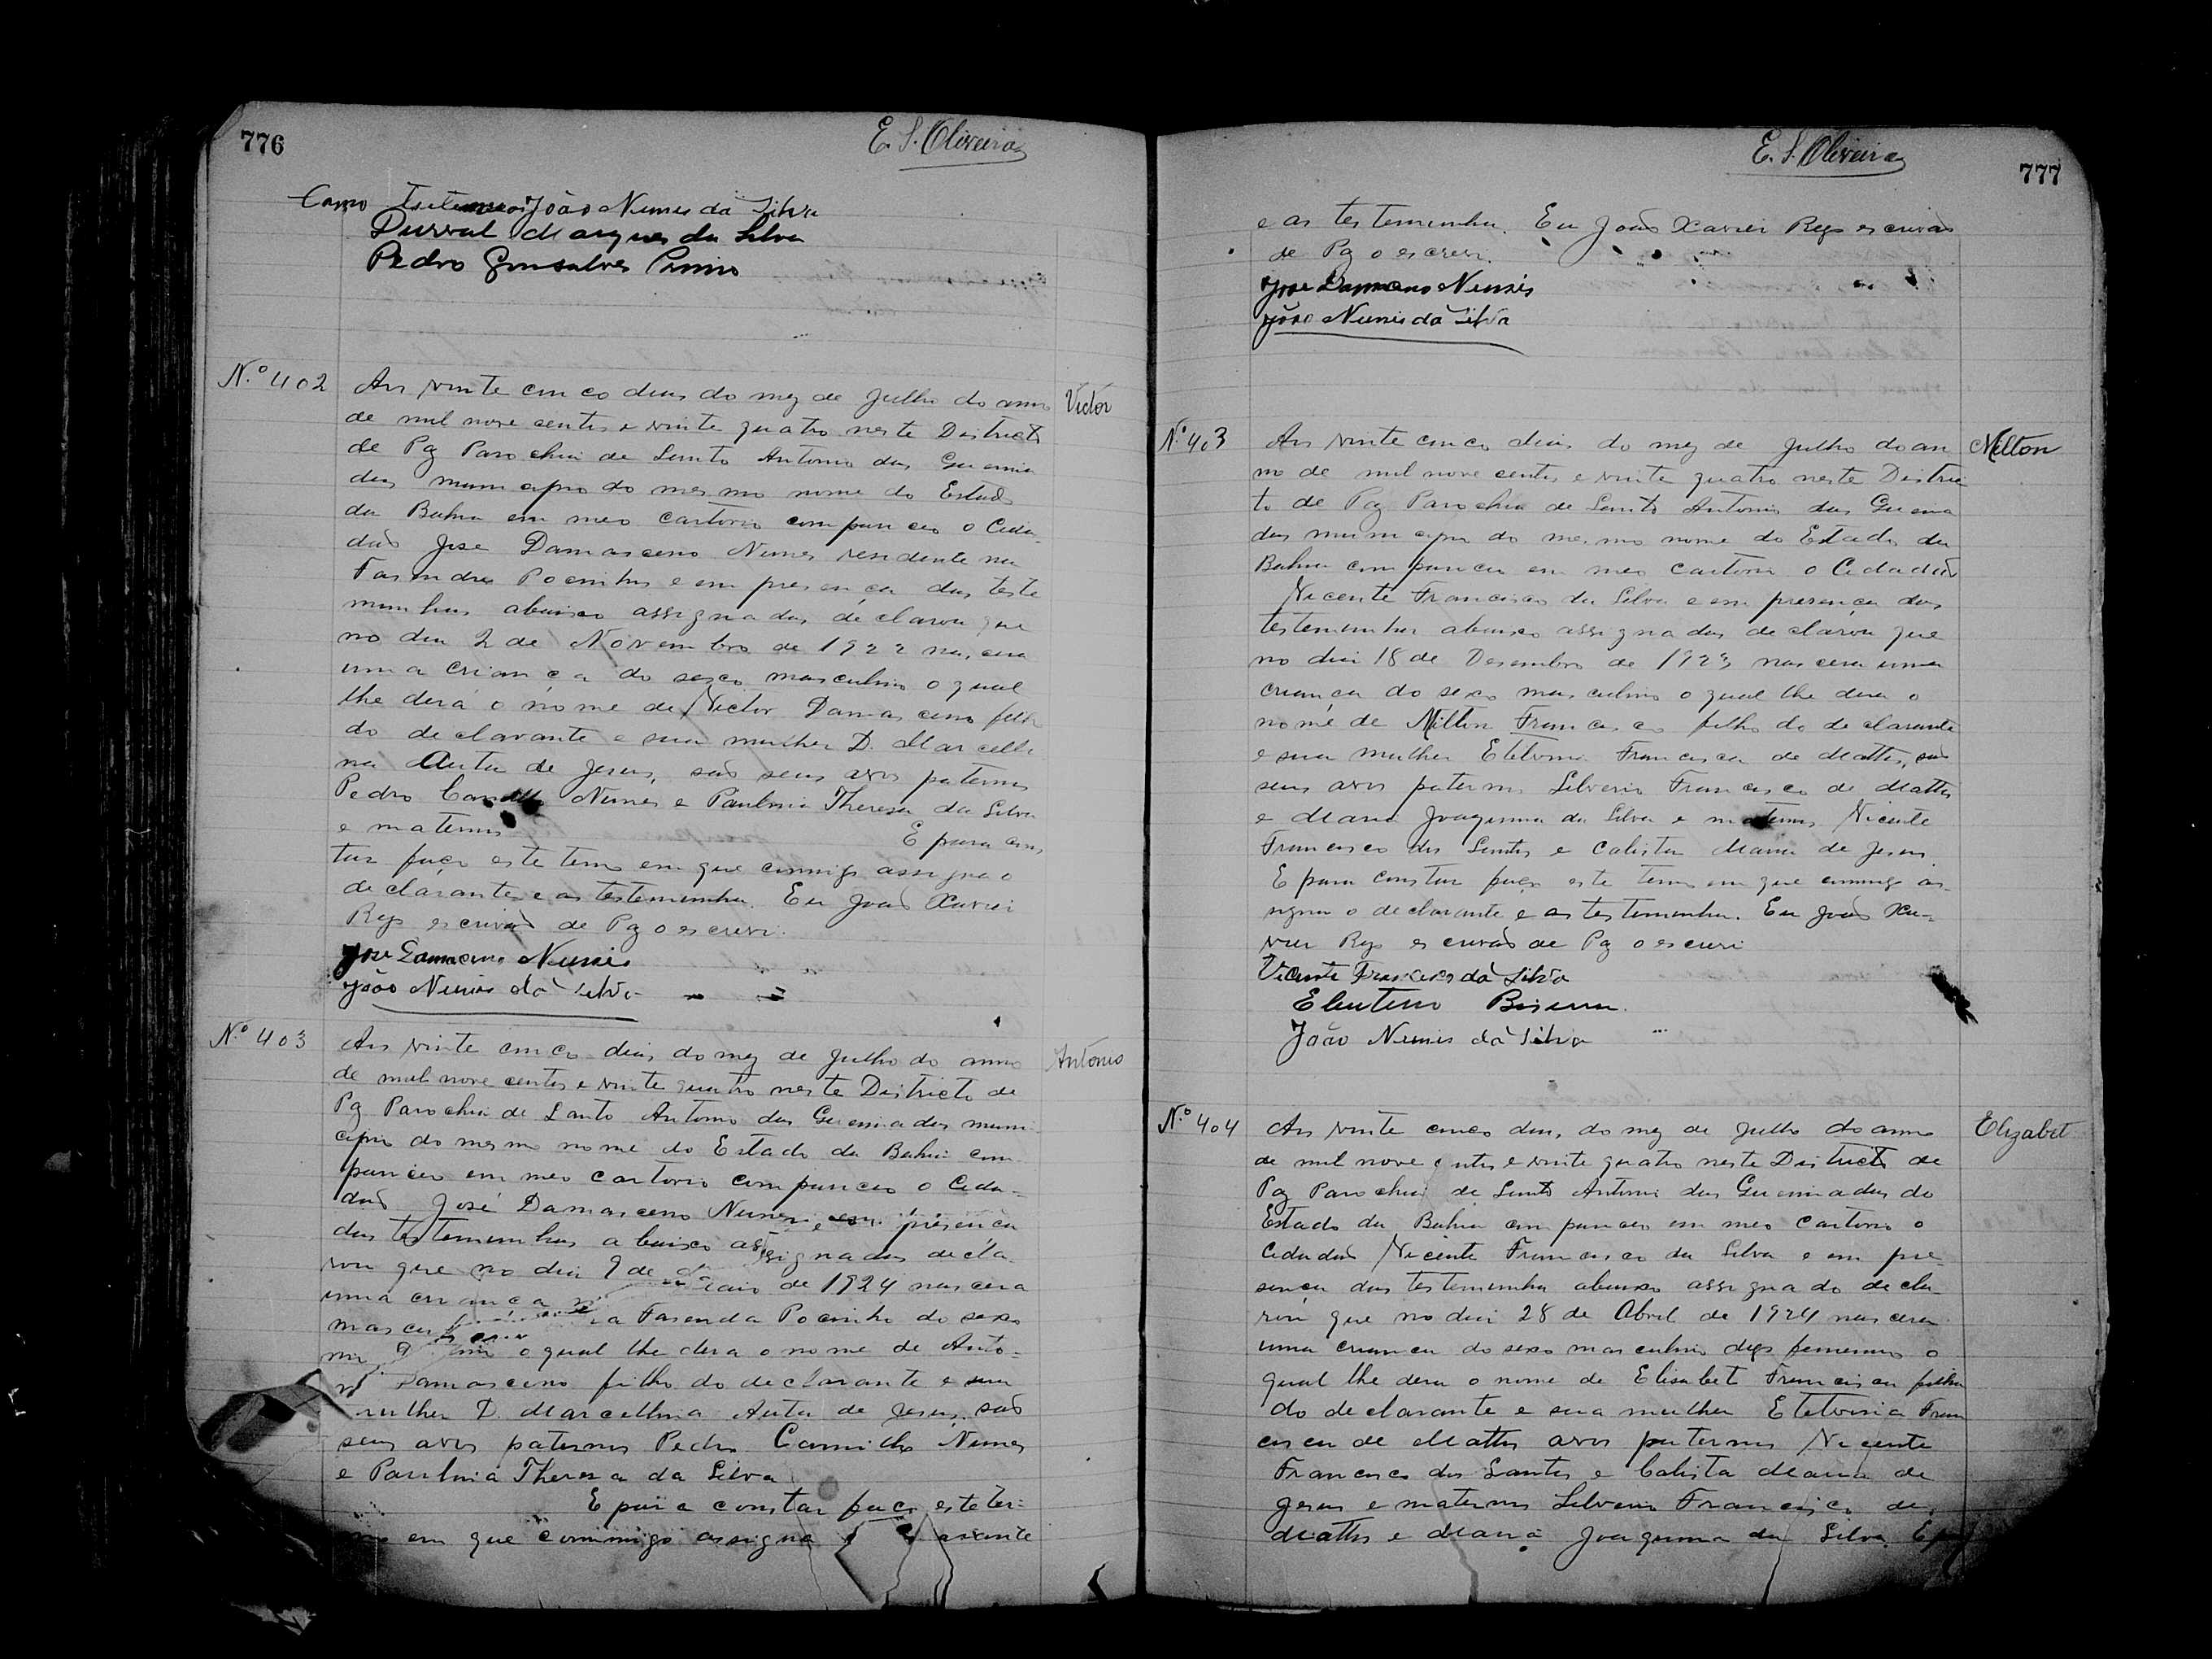 776
E. S. Oliveira
Como João Nunes da Silva
Durval Marques da Silva
Pedro Gonsalves
N.º 402
Victor
Aos vinte cinco dias do mez de Julho do anno
de mil nove centos e vinte quatro neste Districto
de Pz Parochia de Santo Antonio das Queima
das municipio do mesmo nome do Estado
da Bahia em meo cartorio compareceo o Cida-
dão Jose Damasceno Nunes residente na
Fasenda Pocinhos e em presença das teste
munhas abaixo assignadas declarou que
no dia 2 de Novembro de 1922 nascera
uma criança do sexo masculino o qual
lhe dera o nome de Victor Damasceno filho
do declarante e sua mulher D. Marcelli
na Auta de Jesus, são seus avos paternos
Pedro Camillo Nunes e Paulinia Theresa da Silva
e maternos E para cons
tar faço este termo em que commigo assigna o
declarante e as testemunha. Eu João Xavier
Reys escrivão de Pz o escrevi.
Jose Damaceno Nunes
João Nunes da Silva
N.º 403
Antonio
Aos vinte cinco dias do mez de Julho do anno
de mil nove centos e vinte quatro neste Districto de
Pz Parochia de Santo Antonio das Queimadas muni
cipio do mesmo nome do Estado da Bahia com
pareceo em meo cartorio compareceo o Cida-
dão José Damasceno Nunes e em presença
das testemunhas abaixo assignadas decla
rou que no dia 9 de Maio de 1924 nascera
uma criança na Fasenda Pocinho do sexo
o qual lhe dera o nome de Anto-
Damasceno filho do declarante e sua
mulher D. Marcellina Auta de Jesus, são
seus avos paternos Pedro Camillo Nunes
e Paulinia Theresa da Silva
E para constar faço este ter-
mo em que commigo assigna
777
E. S. Oliveira
e as testemunha. Eu João Xavier Reys escrivão
de Pz o escrevi.
Jose Damaceno Nunes
João Nunes da Silva
N.º 403
Milton
Aos vinte cinco dias do mez de Julho do an
no de mil nove centos e vinte quatro neste Distric
to de Pz Parochia de Santo Antonio das Queima
das municipio do mesmo nome do Estado da
Bahia compareceu em meo cartorio o Cidadão
Vicente Francisco da Silva e em presença das
testemunhas abaixo assignadas declarou que
no dia 18 de Desembro de 1923 nascera uma
criança do sexo masculino o qual lhe dera o
nome de Milton Francisco filho do declarante
e sua mulher Etelvina Francisca de Mattos, são
seus avos paternos Silverio Francisco de Mattos
e Maria Joaquina da Silva e maternos Vicente
Francisco dos Santos e Calista Maria de Jesus.
E para constar faço este termo em que commigo as-
signa o declarante e as testemunha. Eu João Xa-
vier Reys escrivão de Pz o escrevi
Vicente Francisco da Silva
João Nunes da Silva
N.º 404
Elizabet
Aos vinte cinco dias, do mez de Julho do anno
de mil nove centos e vinte quatro neste Districto de
Pz Parochia de Santo Antonio das Queimadas do
Estado da Bahia compareceo em meo cartorio o
Cidadão Vicente Francisco da Silva e em pre-
sença das testemunha abaixo assignado decla-
rou que no dia 28 de Abril de 1924 nascera
uma criança do sexo masculino digo femenino o
qual lhe dera o nome de Elisabete Francisca filha
do declarante e sua mulher Etelvina Fran
cisca de Mattos avos paternos Vicente
Francisco dos Santos e Calista Maria de
Jesus e maternos Silverio Francisco de
Mattos e Maria Joaquina da Silva. E